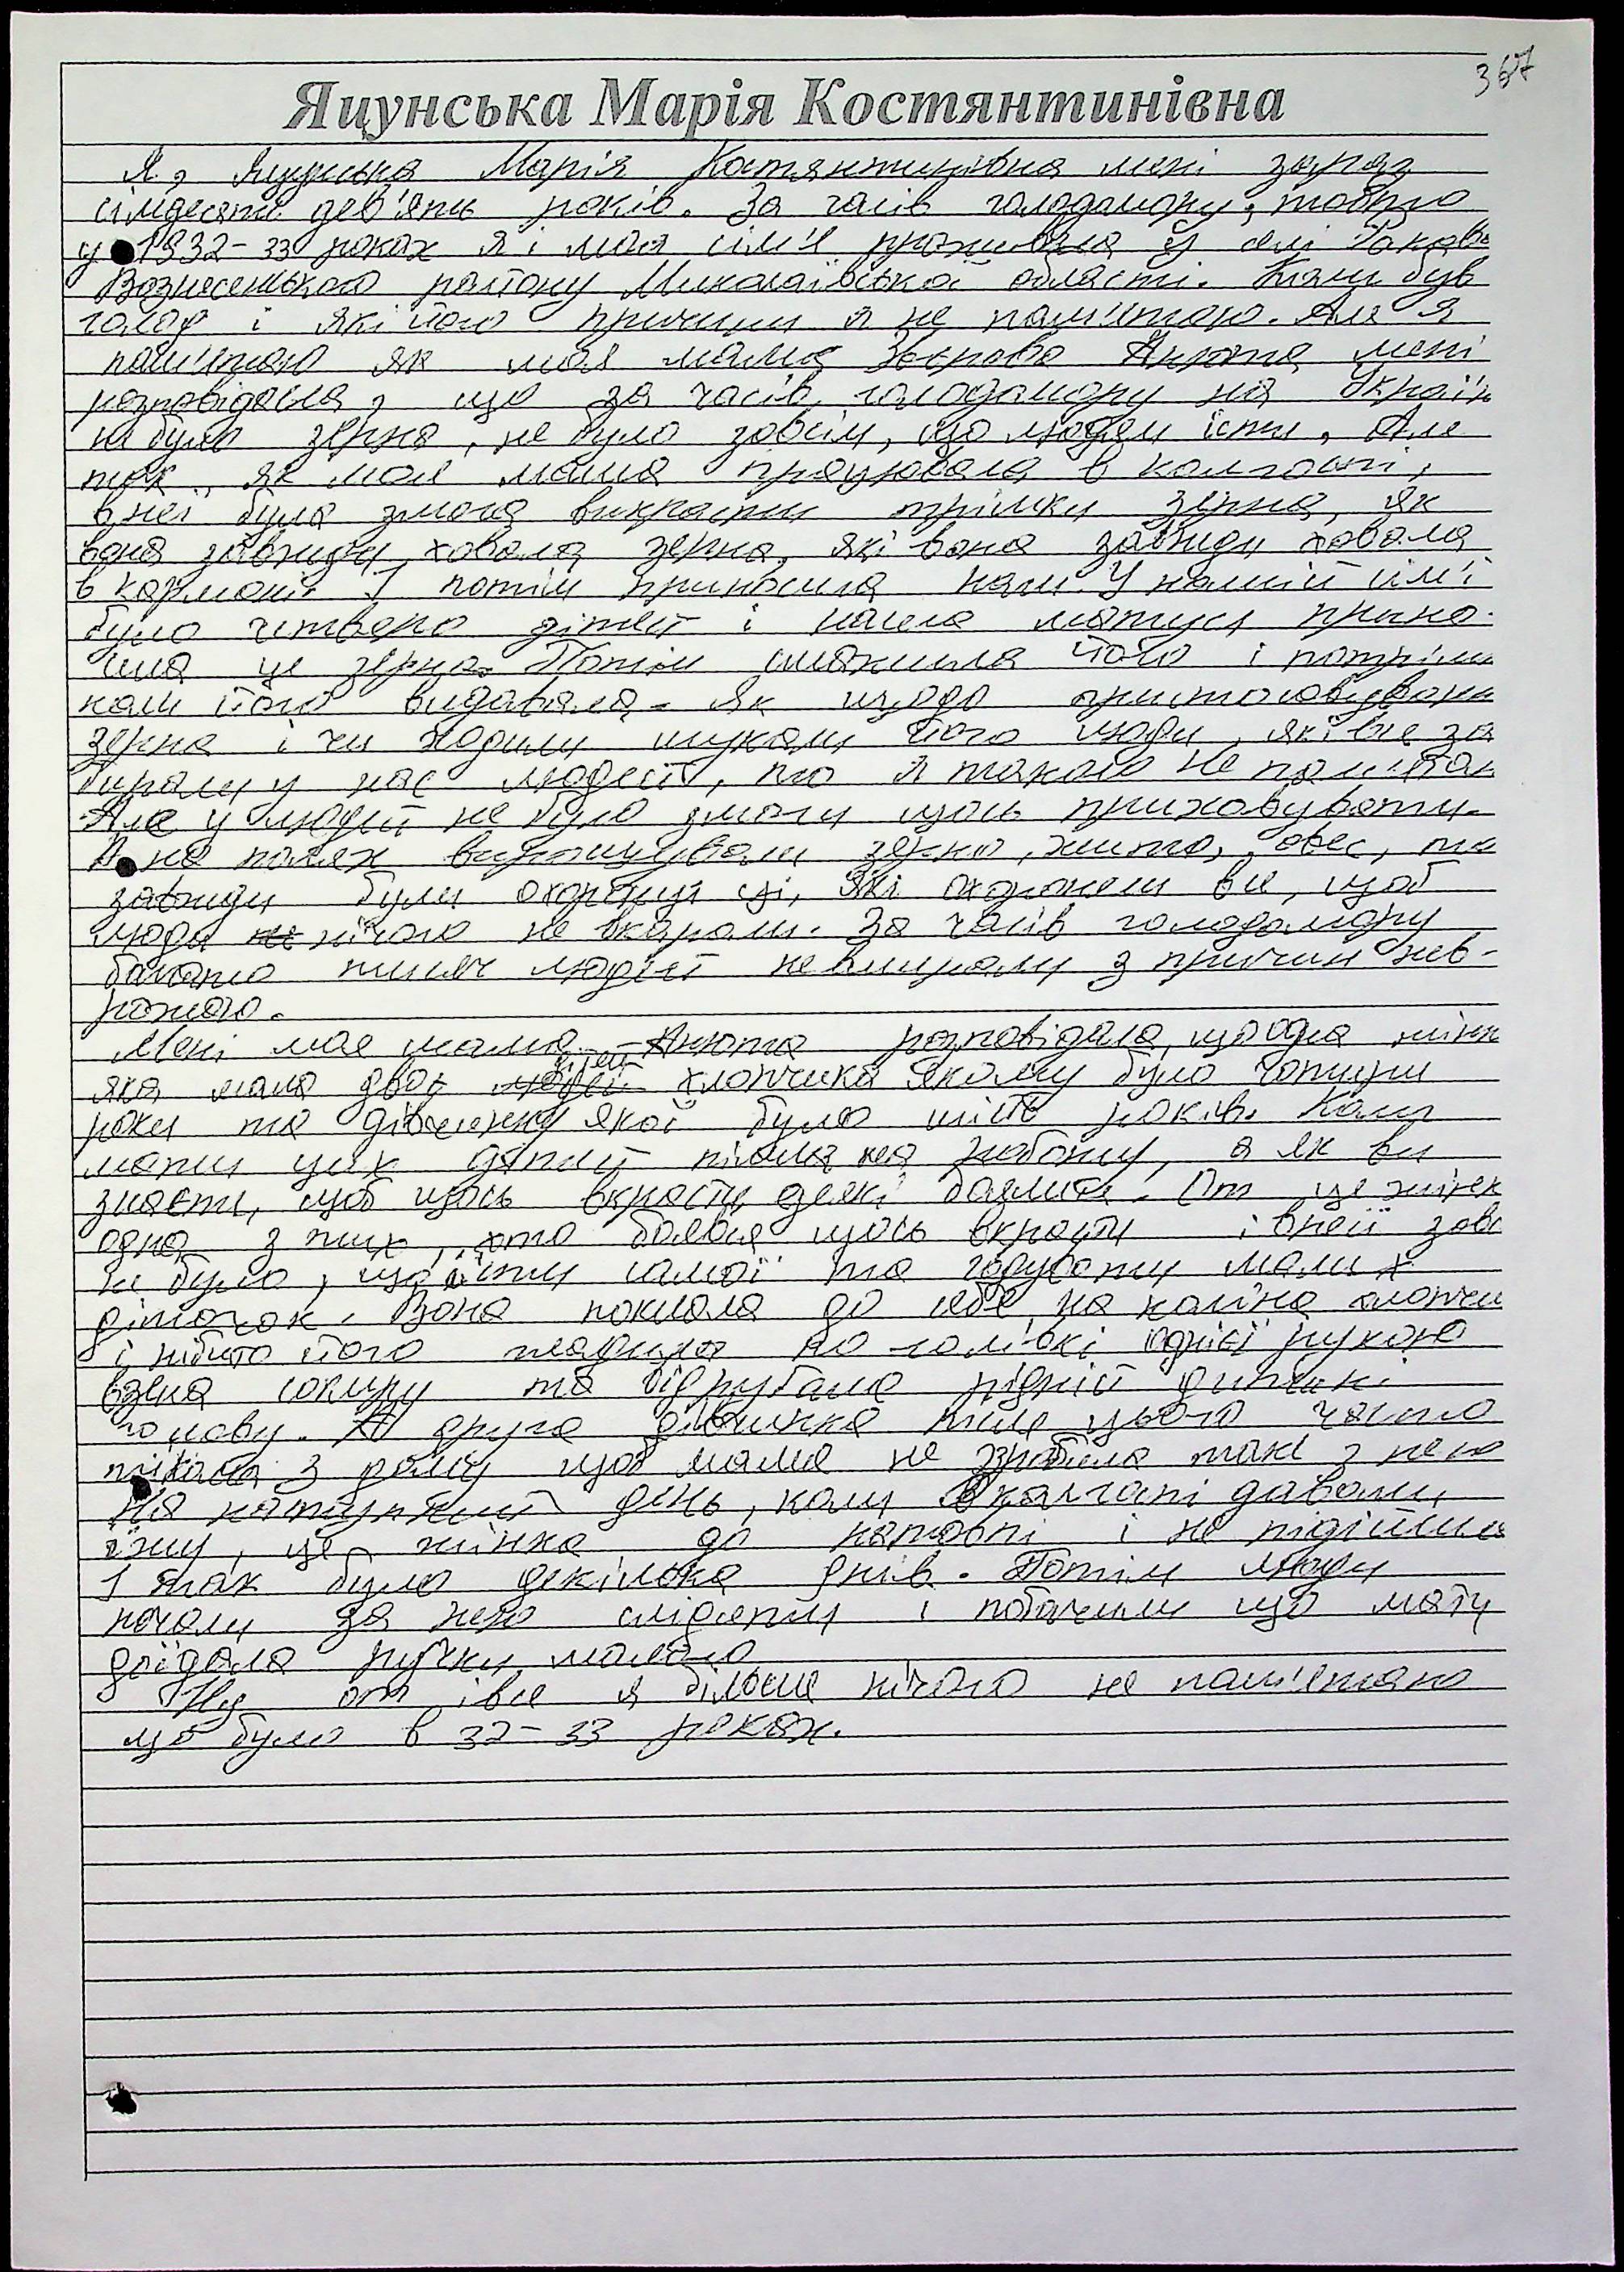 367
Яцунська Марія Костянтинівна
Я, Яцунська Марія Костянтинівна мені зараз
сімдесять дев'ять років. За часів голодомору, тобто
у 1932-33 роках я і моя сім'я проживала у селі Раков
Вознесенського району Миколаївської області. був
голод і які його причини я не пам'ятаю. Але я
пам'ятаю як моя мама Анюта мені
розповідала, що за часів голодомору на Україн
не було зерна, не було зовсім, що людям їсти. Але
так, як моя мама працювала в колгоспі,
в неї була змога викрасти трішки зерна, як
вона завжди ховала зерна, які вона завжди ховала
в кармані. І потім приносила нам. У нашій сім'ї
було четверо дітей і наша матуся прино-
сила це зерно. Потім смажила його і потрішк
нам його видавала. Як щодо приготовування
зерна і чи ходили шукали його люди, які все за
бирали у нас людей, то я такого не пам'ятаю
Але у людей не було змоги щось приховувати.
А на полях вирощували зерно, жито, овес, та
завжди були охоронці, які охороняли все, щоб
люди не нічого не вкрали. За часів голодомору
багато тисяч людей повмирали з причин нев-
рожаю.
Мені моя мама Анюта розповідала, що одна жінк
яка мала двох людей дітей хлопчика якому було чотири
роки та дівчинку якої було шість років. Коли
мати цих дітей пішла на роботу, а як ви
знаєти, щоб щось вкрасти деякі боялися. От це жінк
одна з тих, хто боявся щось вкрасти і в неї зовс
не було, що їсти самої та годувати малих
діточок. Вона поклала до себе на коліна хлопчи
і, нібито його гладила по голівкі однієї рукою
взяла сокиру та відрубала рідній дитині
голову. А друга дівчинка після цього часто
тікала з дому щоб мама не зробила таке з нею
На наступний день, коли в колгоспі давали
їжу, це жінка до натовпі і не підійшла
І так було декілька днів. Потім люди
почали за нею слідити і побачили що мати
доїдала ручки малого
Ну от і все я більше нічого не пам'ятаю
що було в 32-33 роках.